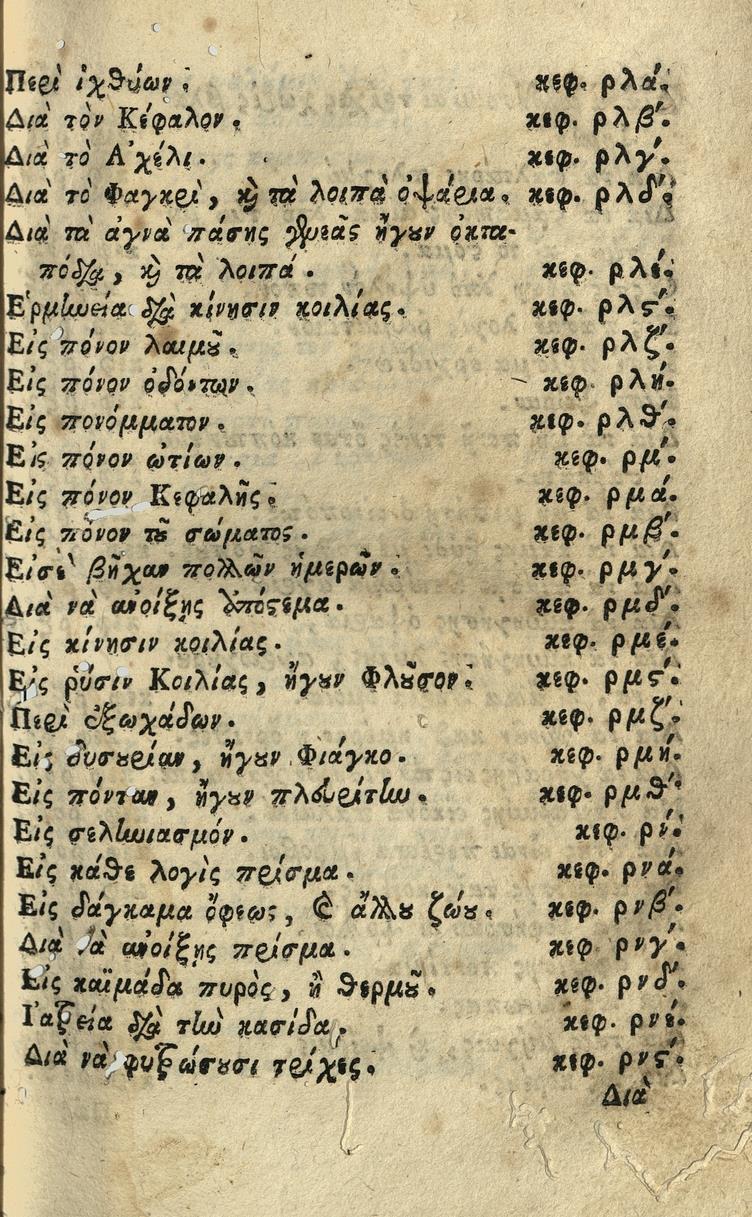 Περὶ ἰχθύων. κεφ. ρλά.
Διὰ τὸν Κέφαλον. κεφ. ρλβ΄.
Διὰ τὸ Ἀχέλι. κεφ. ρλγ΄.
Διὰ τὸ Φαγκρὶ, ϗ τὰ λοιπὰ ὀψάρια. κεφ. ρλδ΄.
Διὰ τὰ ἁγνὰ πάσης χρειᾶς ἤγουν ὀκτα-
πόδια, ϗ τὰ λοιπά. κεφ. ρλέ.
Ἑρμηνεία διὰ κίνησιν κοιλίας. κεφ. ρλϛ΄.
Εἰς πόνον λαιμοῦ. κεφ. ρλζ΄.
Εἰς πόνον ὀδόντων. κεφ. ρλή.
Εἰς πονόμματον. κεφ. ρλθ΄.
Εἰς πόνον ὠτίων. κεφ. ρμ΄.
Εἰς πόνον Κεφαλῆς. κεφ. ρμά.
Εἰς πόνον τοῦ σώματος. κεφ. ρμβ΄.
Εἰσὲ βῆχαν πολλῶν ἡμερῶν. κεφ. ρμγ΄.
Διὰ νὰ ἀνοίξῃς ἀπόστεμα. κεφ. ρμδ΄.
Εἰς κίνησιν κοιλίας. κεφ. ρμέ.
Εἰς ῥύσιν Κοιλίας, ἤγουν Φλοῦσον. κεφ. ρμϛ΄.
Περὶ ἐξωχάδων. κεφ. ρμζ΄.
Εἰς δυσουρίαν, ἤγουν Φιάγκο. κεφ. ρμή.
Εἰς πόνταν, ἤγουν πλευρίτην. κεφ. ρμθ΄.
Εἰς σεληνιασμόν. κεφ. ρν΄.
Εἰς κάθε λογὶς πρίσμα. κεφ. ρνά.
Εἰς δάγκαμα ὄφεως, ϗ ἄλλου ζώου. κεφ. ρνβ΄.
Διὰ νὰ ἀνοίξῃς πρίσμα. κεφ. ρνγ΄.
Εἰς καϊμάδα πυρὸς, ἢ θερμοῦ. κεφ. ρνδ΄.
Ἰατρεία διὰ τὴν κασίδα. κεφ. ρνέ.
Διὰ νὰ φυτρώσουσι τρίχες. κεφ. ρνϛ΄.
Διὰ